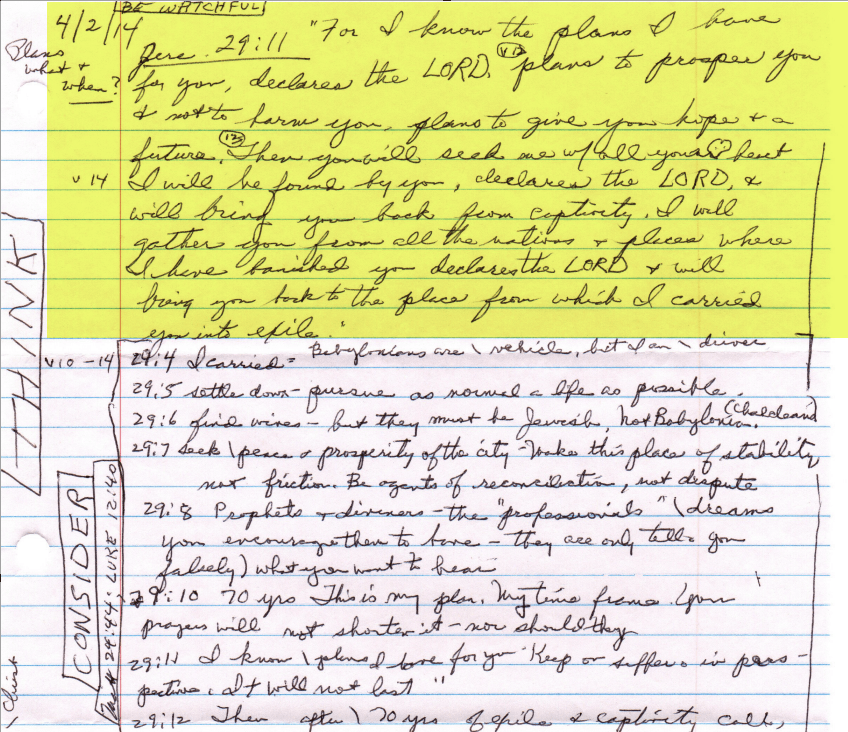 BE WATCHFUL
4/2/14 "For I know the plans I have
Plans what + when?
Jere. 29:11
for you, declares the LORD, v12 plans to prosper you
+ not to harm you, plans to give you hope + a
future. 13 Then you will seek me w/ all your heart
v 14 I will be found by you, declares the LORD, +
will bring you back from captivity. I will
gather you from all the nations + places where
I have banished you declares the LORD + will
bring you back to the place from which I carried
you into exile."
THINK
v10-14 29:4 I carried = Babylonians are \ vehicle, but I am \ driver
29:5 settle down - pursue as normal a life as possible.
29:6 find wives - but they must be Jewish, not Babylonian. (Chaldeans)
29:7 seek \ peace + prosperity of the city - Make this place of stability
not friction. Be agents of reconciliation, not dispute
29:8 Prophets + diviners - the "professionals" \ dreams
you encourage them to have - they are only telling you
falsely) what you want to hear
29:10 70 yrs This is my plan. My time frame. Your
prayers will not shorten it - nor should they
29:11 I know \ plans I have for you "Keep on suffering in pers-
pective. It will not last"
29:12 Then after \ 70 yrs of exile + captivity call,
CONSIDER
24:44: LUKE 12:40
\ Christ